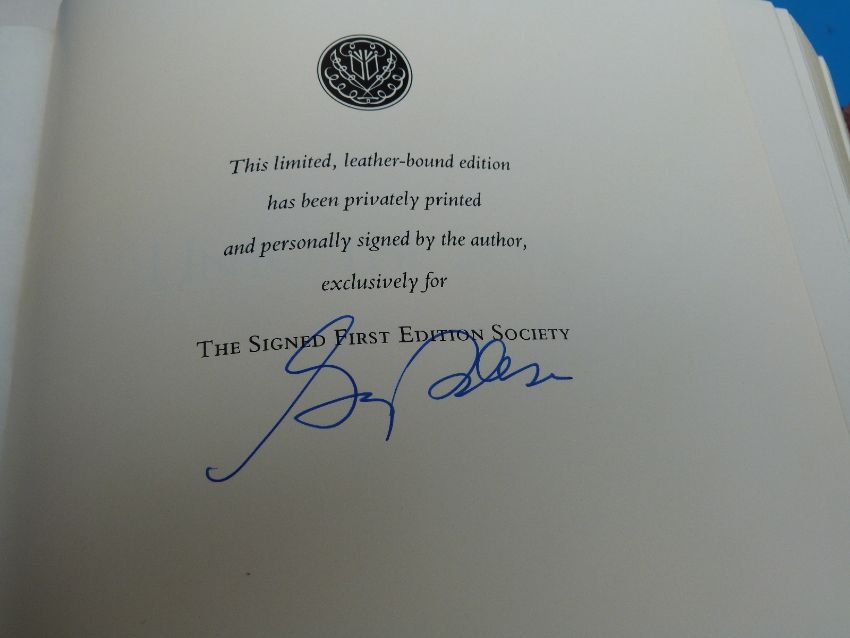 This limited, leather-bound edition
has been privately printed
and personally signed by the author,
exclusively for
THE SIGNED FIRST EDITION SOCIETY